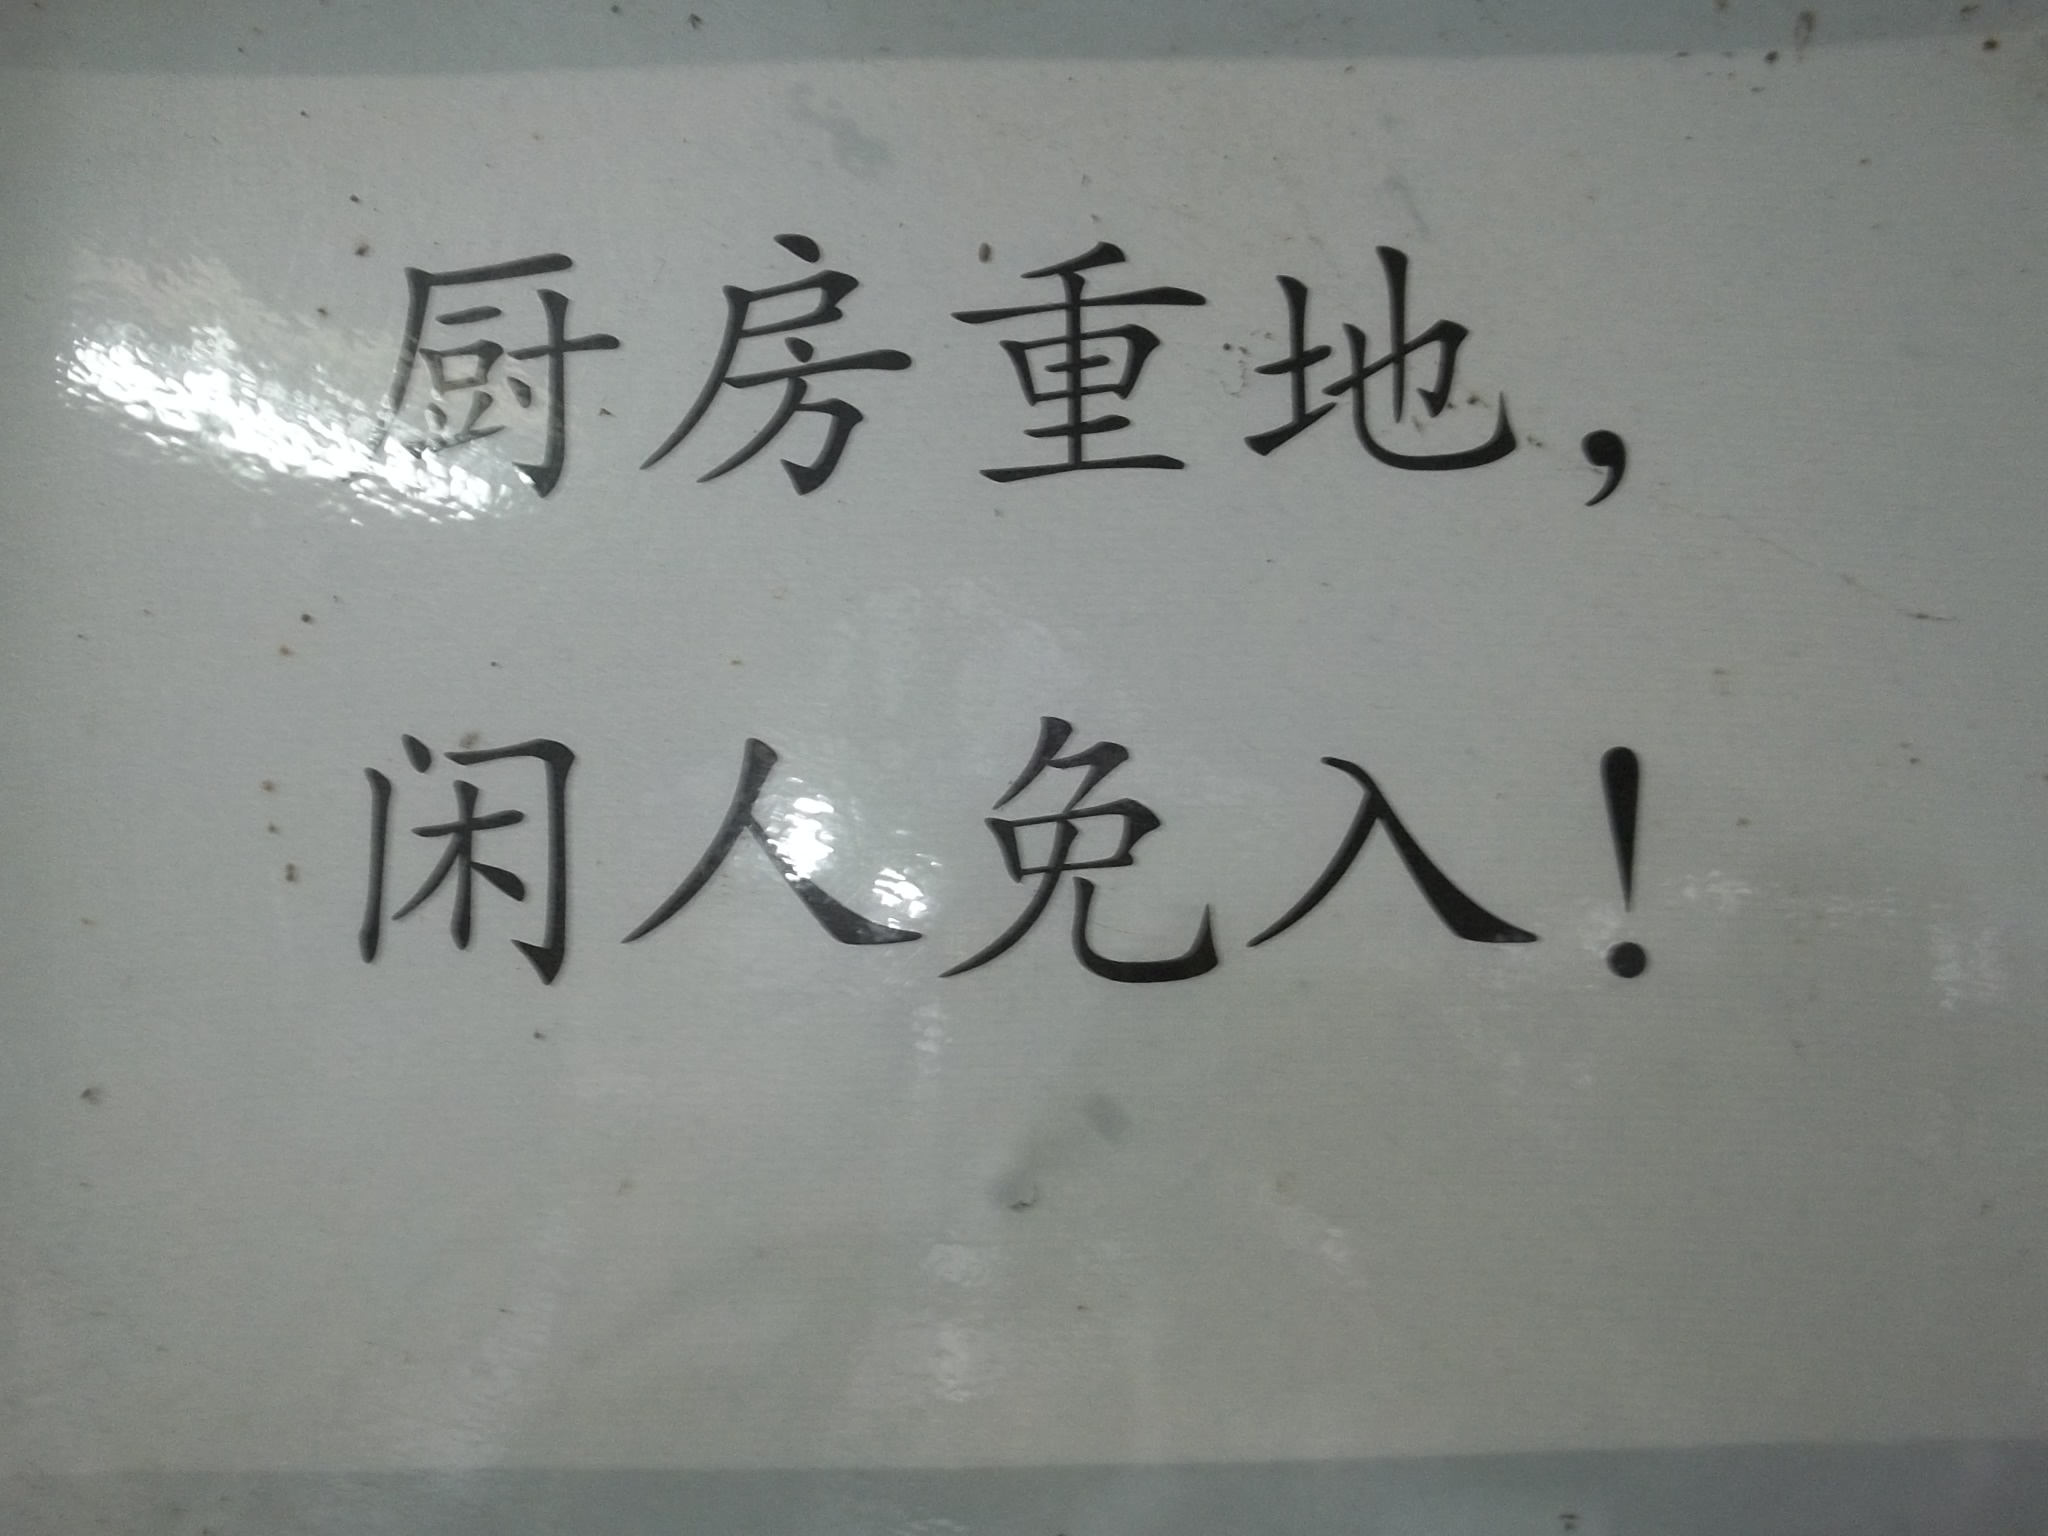 厨房重地，
闲人免入！